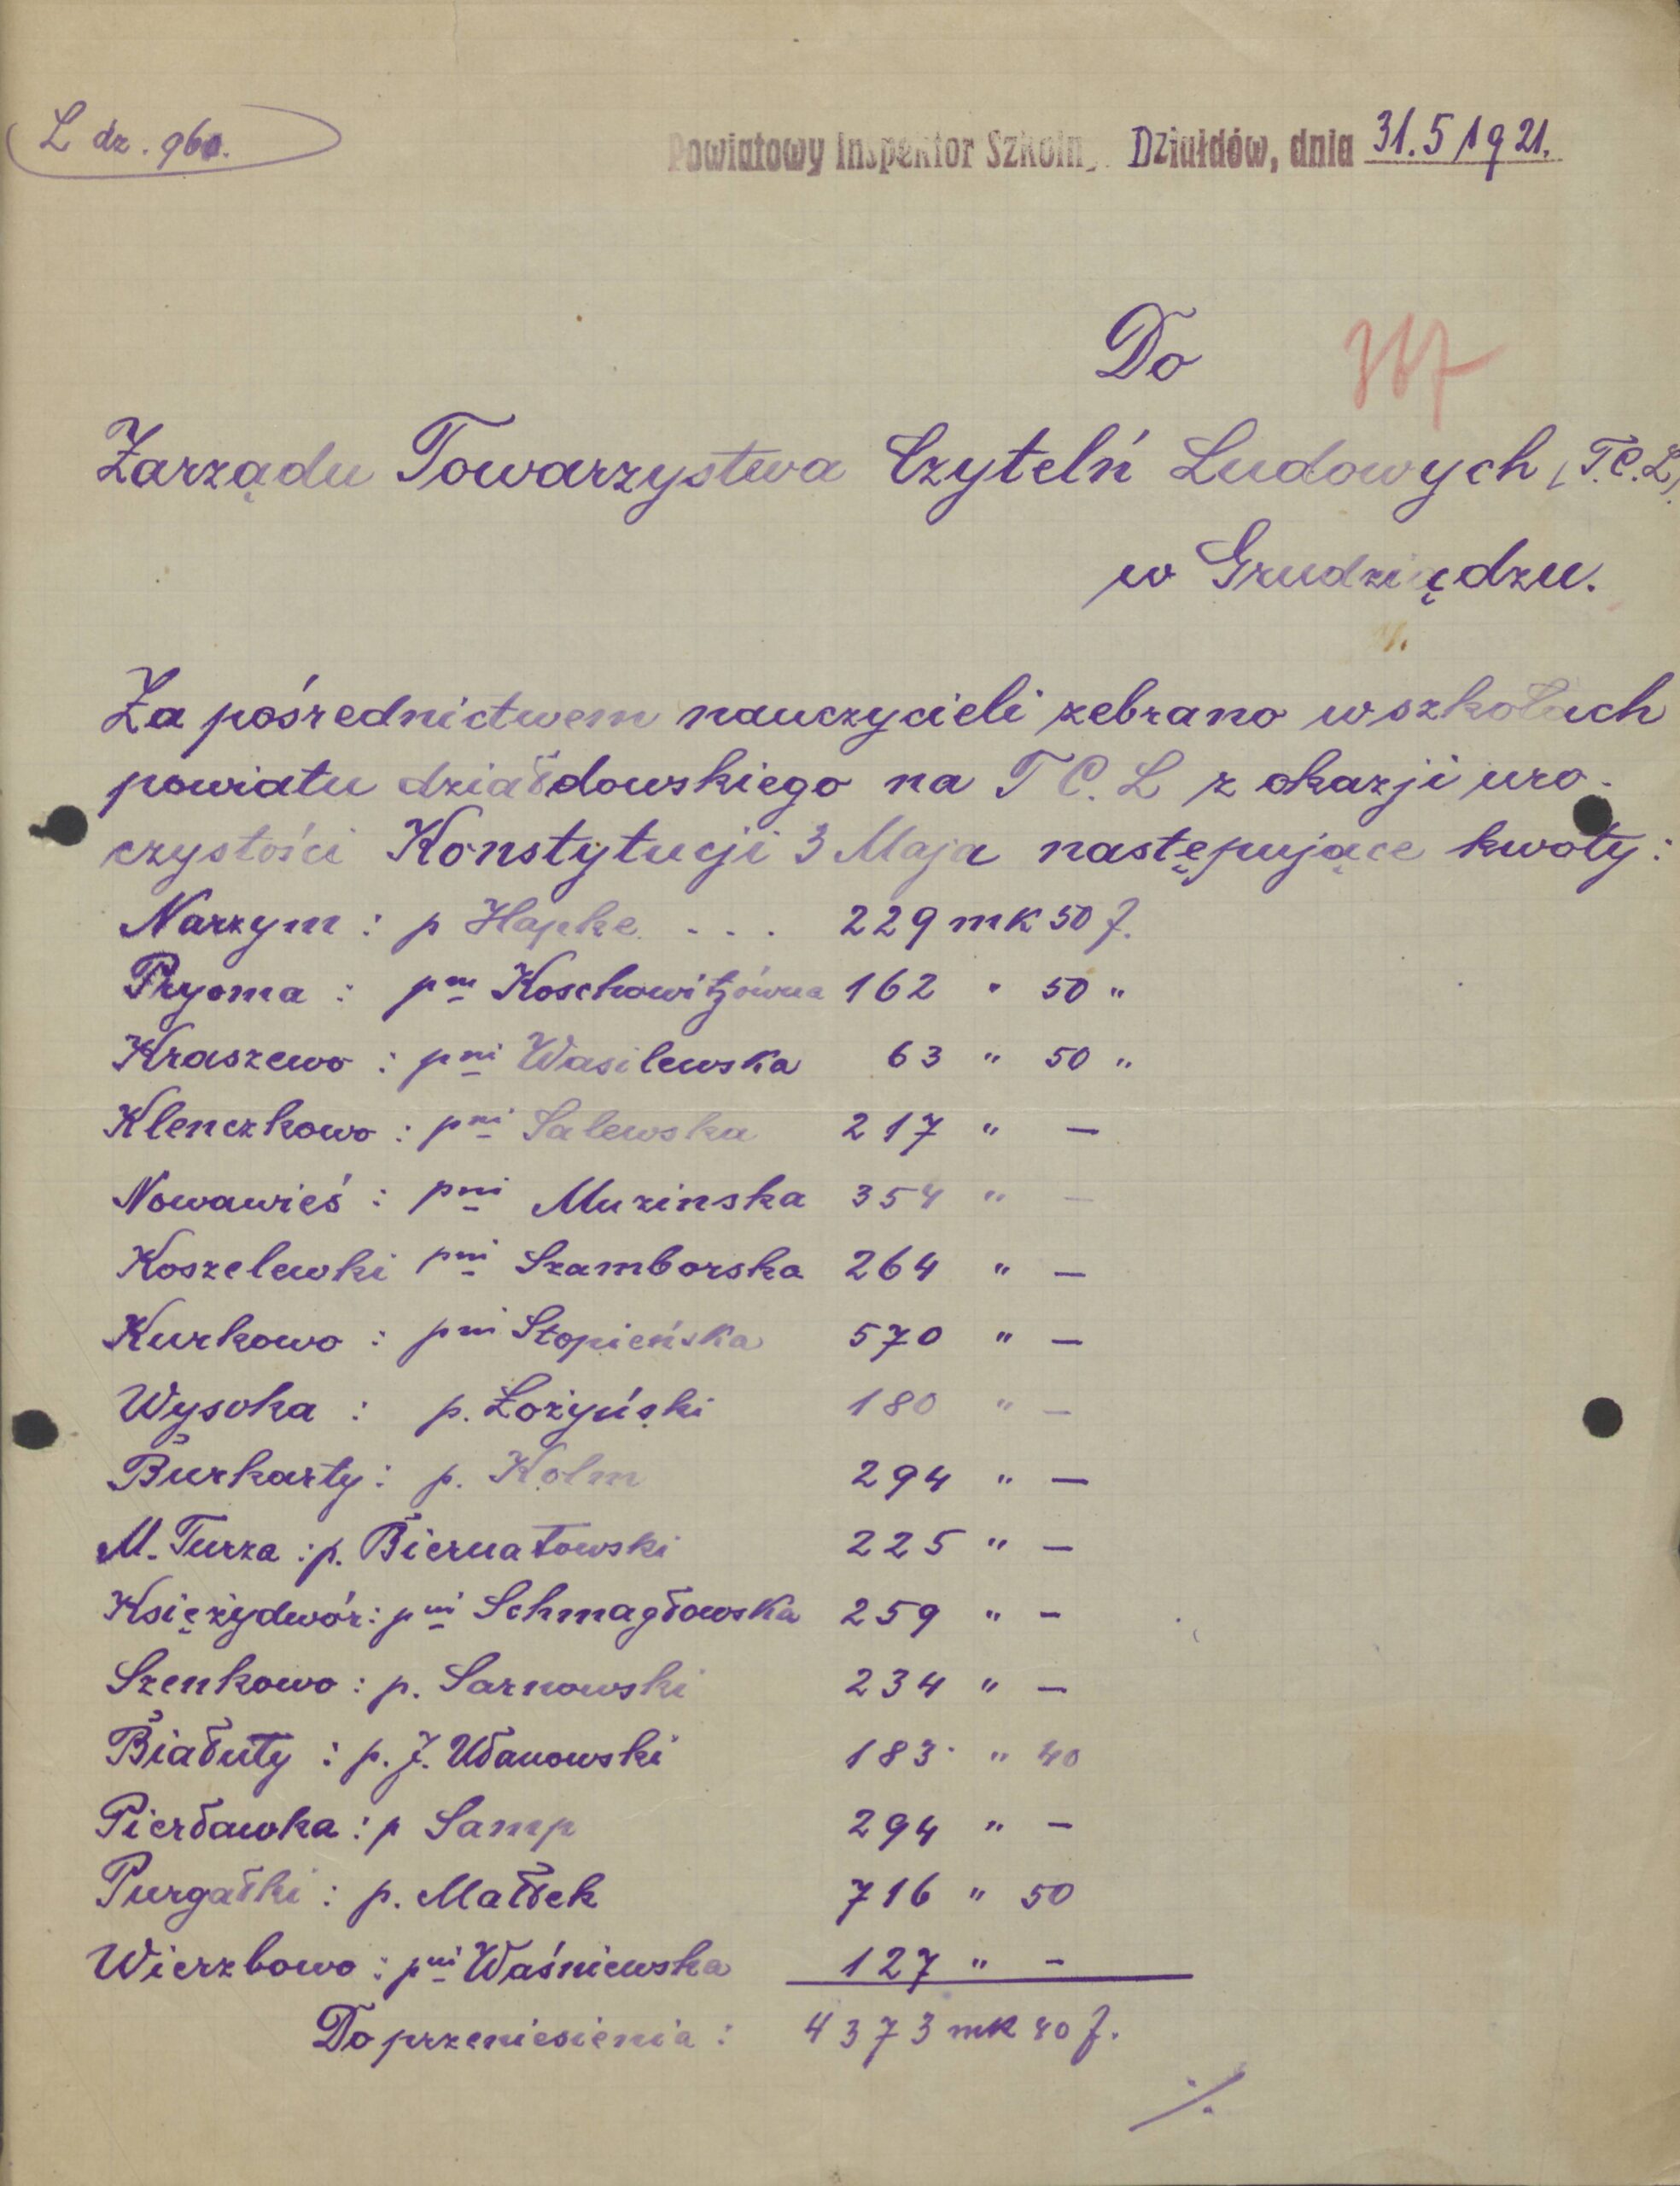 L dz. 960.
Powiatowy Inspektor Szkolny. Działdów, dnia 31.5 1921.
Do
Zarządu Towarzystwa Czytelń Ludowych (T.C.L)
w Grudziądzu.
Za pośrednictwem nauczycieli zebrano w szkołach
powiatu działdowskiego na T C. L z okazji uro-
czystości Konstytucji 3 Maja następujące kwoty:
Narzym : p Hapke . . . 229 mk 50 f.
: Koschowitzówna 162 " 50 "
Kraszewo : pni Wasilewska 63 " 50 "
Klenczkowo : pni Salewska 217 " —
Nowawieś : pni Muzinska 354 " —
Koszelewki pni Szamborska 264 " —
Kurkowo : pni Stopieńska 570 " —
Wysoka : p. Łożyński 180 " —
Burkarty : p. Kolm 294 " —
M. Turza : p. Biernatowski 225 " —
Księżydwór : pni Schmagłowska 259 " —
Szenkowo : p. Sarnowski 234 " —
Białuty : p. J. Ułanowski 183 " 40
Pierławka : p Samp 294 " —
Purgałki : p. Małłek 716 " 50
Wierzbowo : pni Waśniewska 127 " —
Do przeniesienia : 4373 mk 40 f.
./.